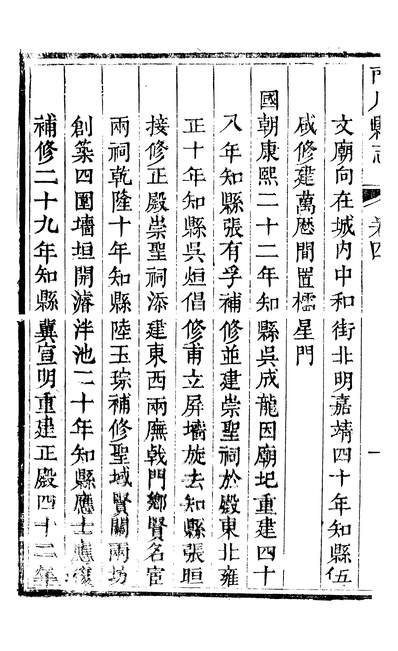 縣志 卷四
文廟向在城内中和街北明嘉靖四十年知縣伍
咸修建萬厯間置櫺星門
國朝康熙二十二年知縣吳成龍因廟圯重建四十
八年知縣張有孚補修並建崇聖祠於殿東北雍
正十年知縣吳烜倡修甫立屏墻旋去知縣張晅
接修正殿崇聖祠添建東西兩廡戟門鄉賢名宦
兩祠乾隆十年知縣陸玉琮補修聖域賢關兩坊
創築四圍墻垣開濬泮池二十年知縣應士龍復
補修二十九年知縣冀宣明重建正殿四十二年